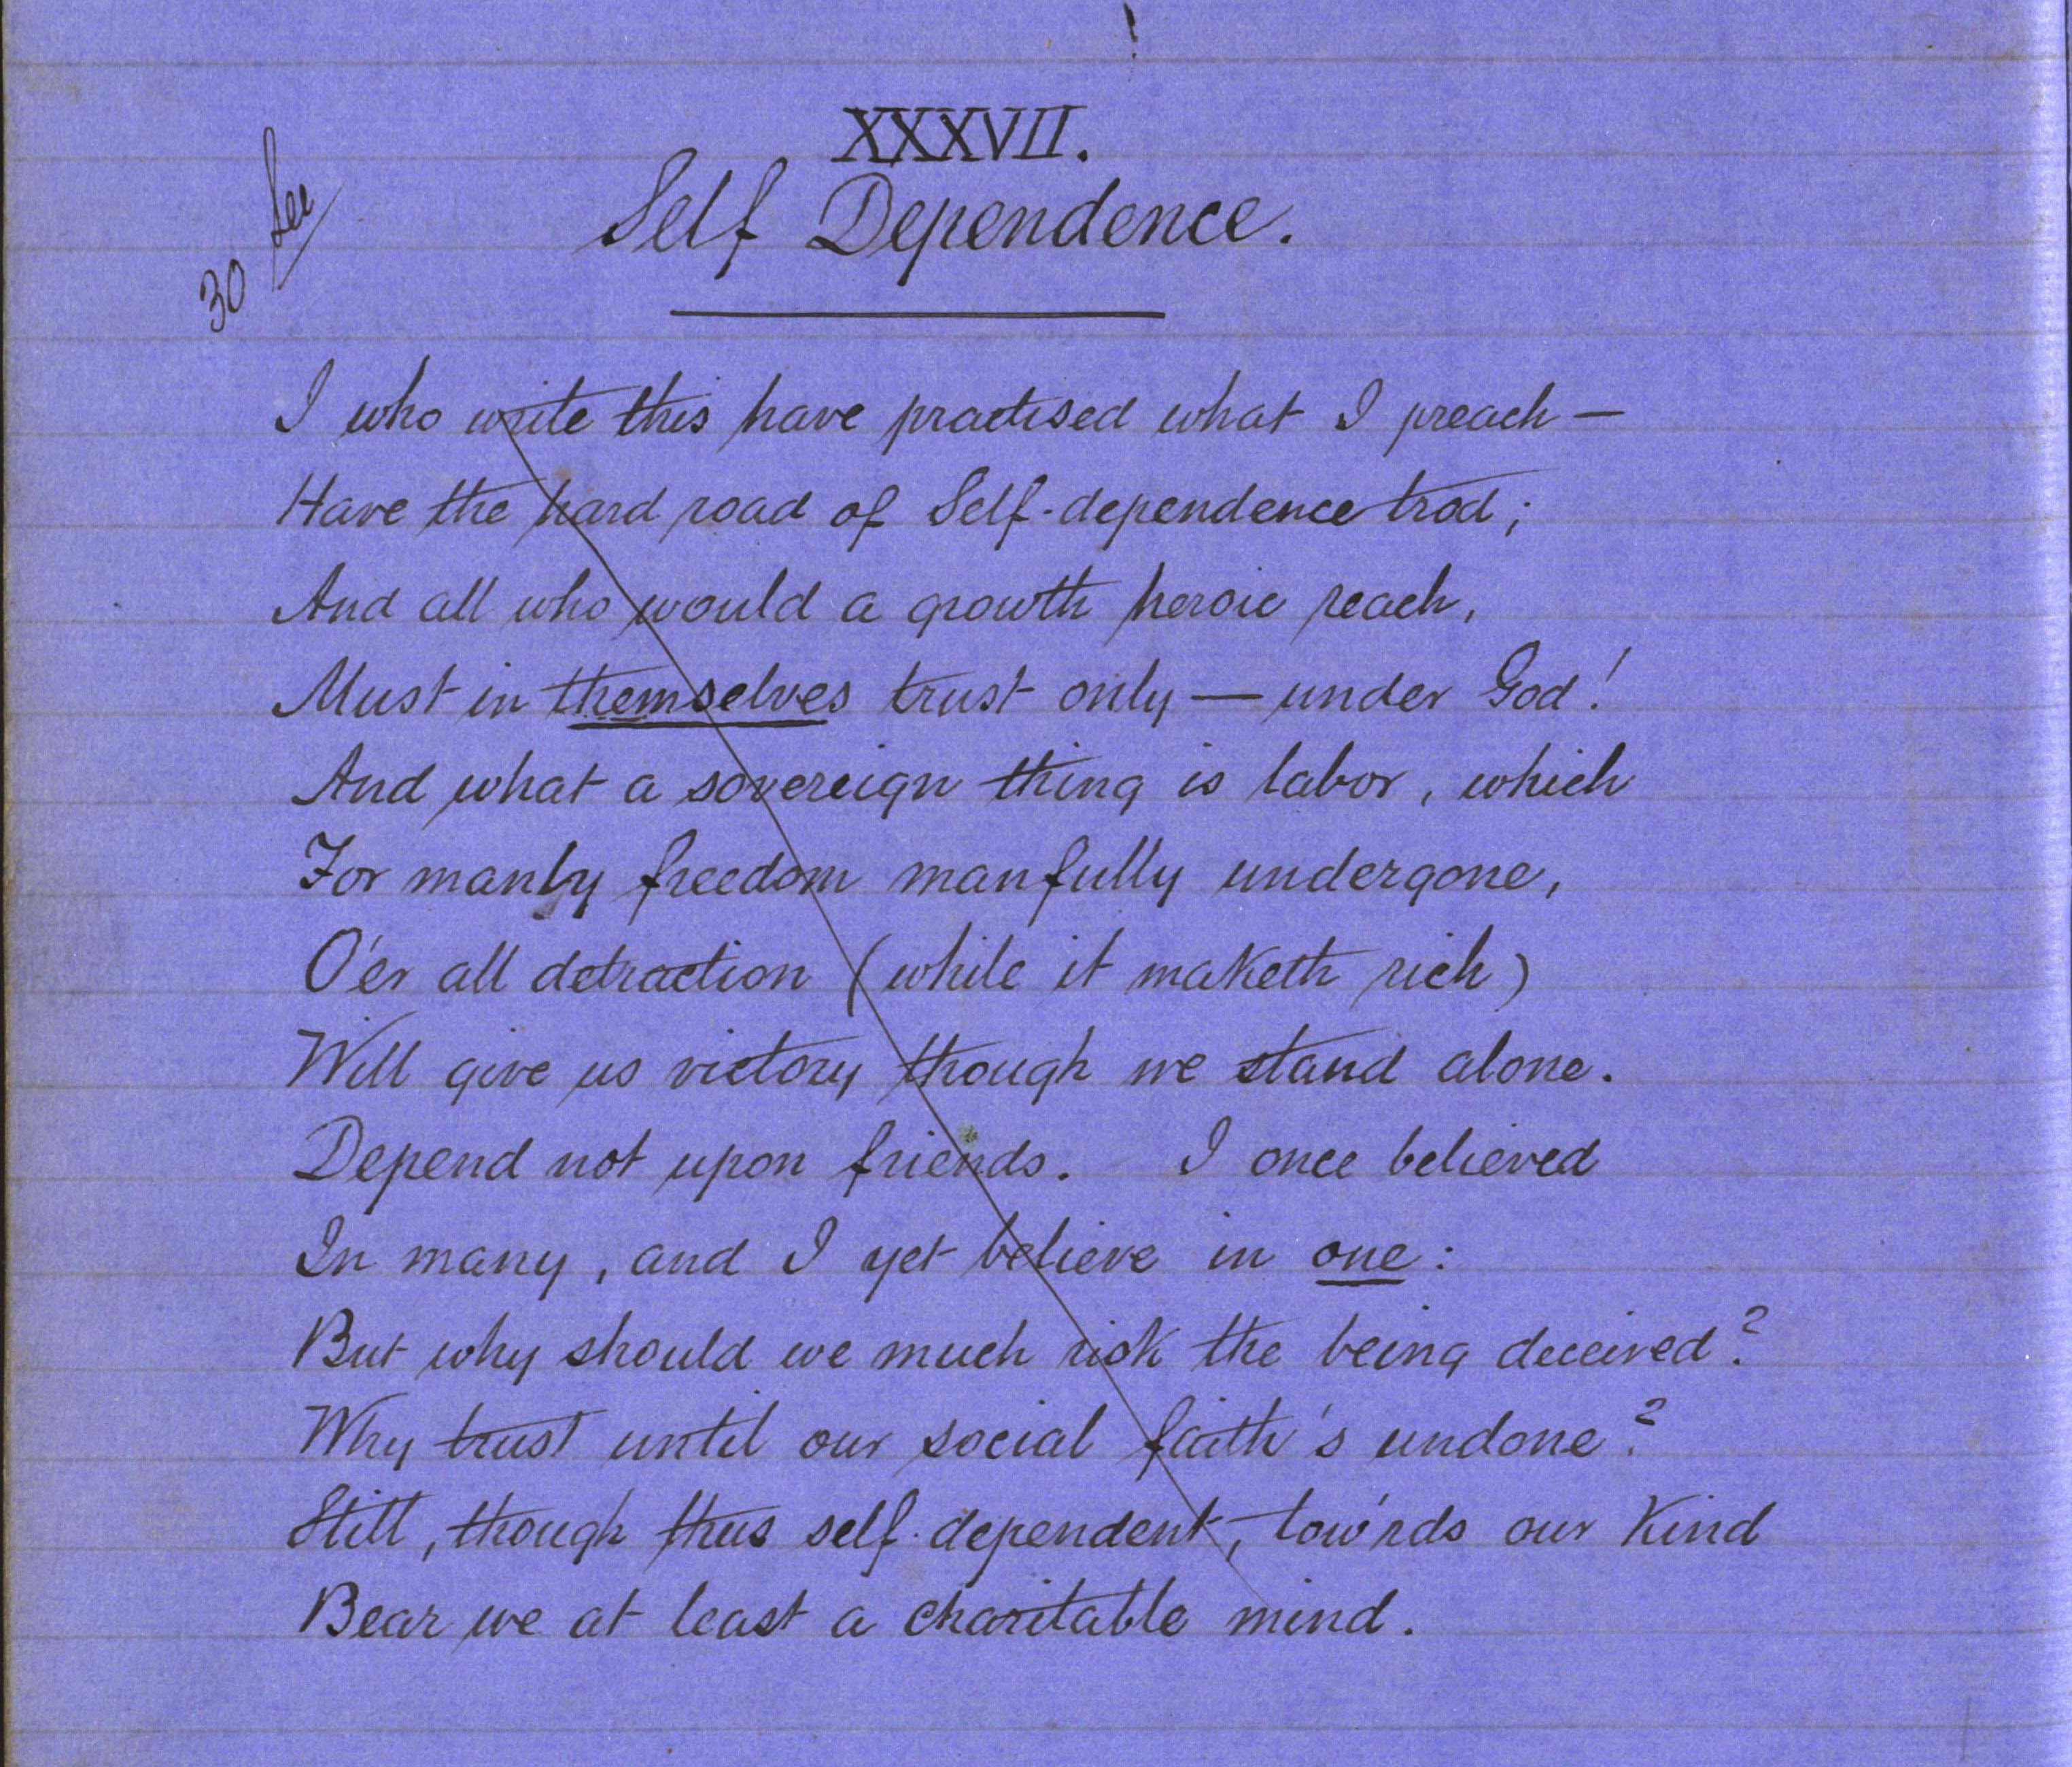 XXXVII.
Self Dependence.
30
I who write this have practised what I preach —
Have the hard road of Self-dependence trod;
And all who would a growth heroic reach,
Must in themselves trust only — under God!
And what a sovereign thing is labor, which
For manly freedom manfully undergone,
O'er all detraction (while it maketh rich)
Will give us victory though we stand alone.
Depend not upon friends. I once believed
In many, and I yet believe in one:
But why should we much risk the being deceived?
Why trust until our social faith's undone?
Still, though thus self-dependent, tow'rds our Kind
Bear we at least a charitable mind.